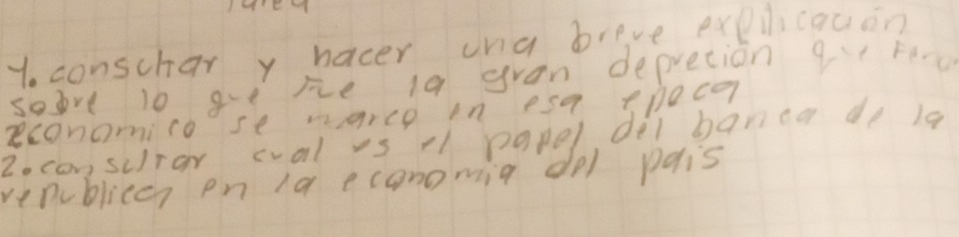 Tarea
1. consultar y hacer una breve explicación
sobre lo que fue la gran depreción que
economico se marco en esa epoca
2. consultar cual es el papel del banca de la
republica en la economia del pais